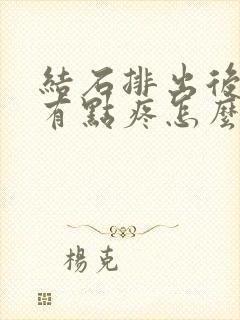 結石排出後
有點疼怎麼
楊克